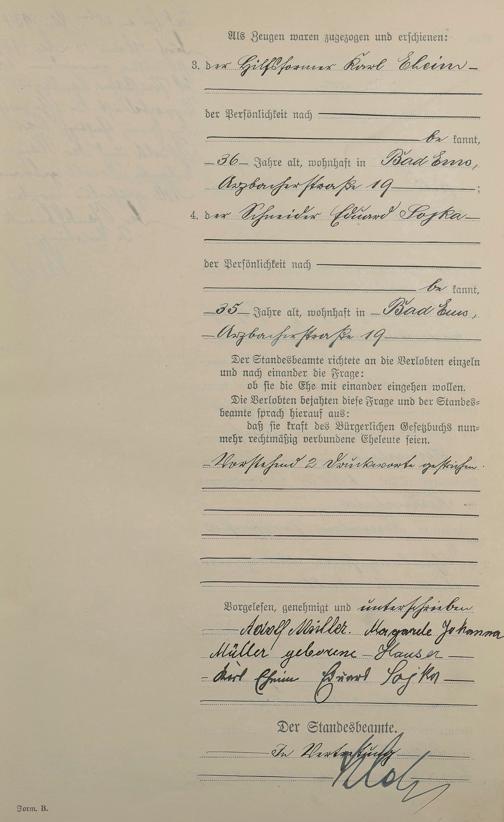 Als Zeugen waren zugezogen und erschienen:
3. der Hilfsformer Karl Eheim
der Persönlichkeit nach
be kannt,
36 Jahre alt, wohnhaft in Bad Ems,
Arzbacherstraße 19 ;
4. der Schneider Eduard Sojka
der Persönlichkeit nach
be kannt,
35 Jahre alt, wohnhaft in Bad Ems,
Arzbacherstraße 19
Der Standesbeamte richtete an die Verlobten einzeln
und nach einander die Frage:
ob sie die Ehe mit einander eingehen wollen.
Die Verlobten bejahten diese Frage und der Standes-
beamte sprach hierauf aus:
daß sie kraft des Bürgerlichen Gesetzbuchs nun-
mehr rechtmäßig verbundene Eheleute seien.
Vorstehend 2 Druckworte gestrichen.
Vorgelesen, genehmigt und unterschrieben
Adolf Müller. Johanna
Müller geborene Hauser
Karl Eheim Eduard Sojka
Der Standesbeamte.
In Vertretung
Form. B.